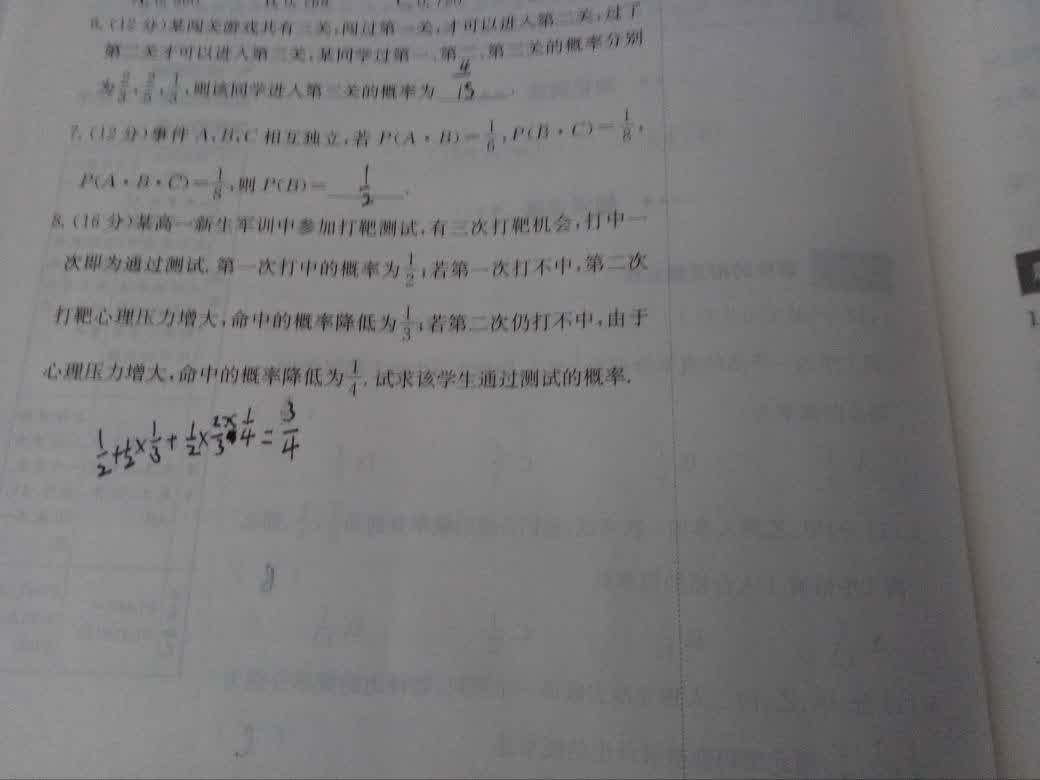 6.(12分)某闯关游戏共有三关,闯过第一关,才可以进入第二关,过了
第二关才可以进入第三关,某同学过第一、第二、第三关的概率分别
为 2/3, 2/5, 1/3,则该同学进入第三关的概率为 4/15 .
7.(12分)事件 A,B,C 相互独立,若 P(A·B)=1/6,P(B·C)=1/8,
P(A·B·C)=1/8,则 P(B)= 1/2 .
8.(16分)某高一新生军训中参加打靶测试,有三次打靶机会,打中一
次即为通过测试. 第一次打中的概率为1/2;若第一次打不中,第二次
打靶心理压力增大,命中的概率降低为1/3;若第二次仍打不中,由于
心理压力增大,命中的概率降低为1/4. 试求该学生通过测试的概率.
1/2+1/2×1/3+1/2×2/3×1/4=3/4